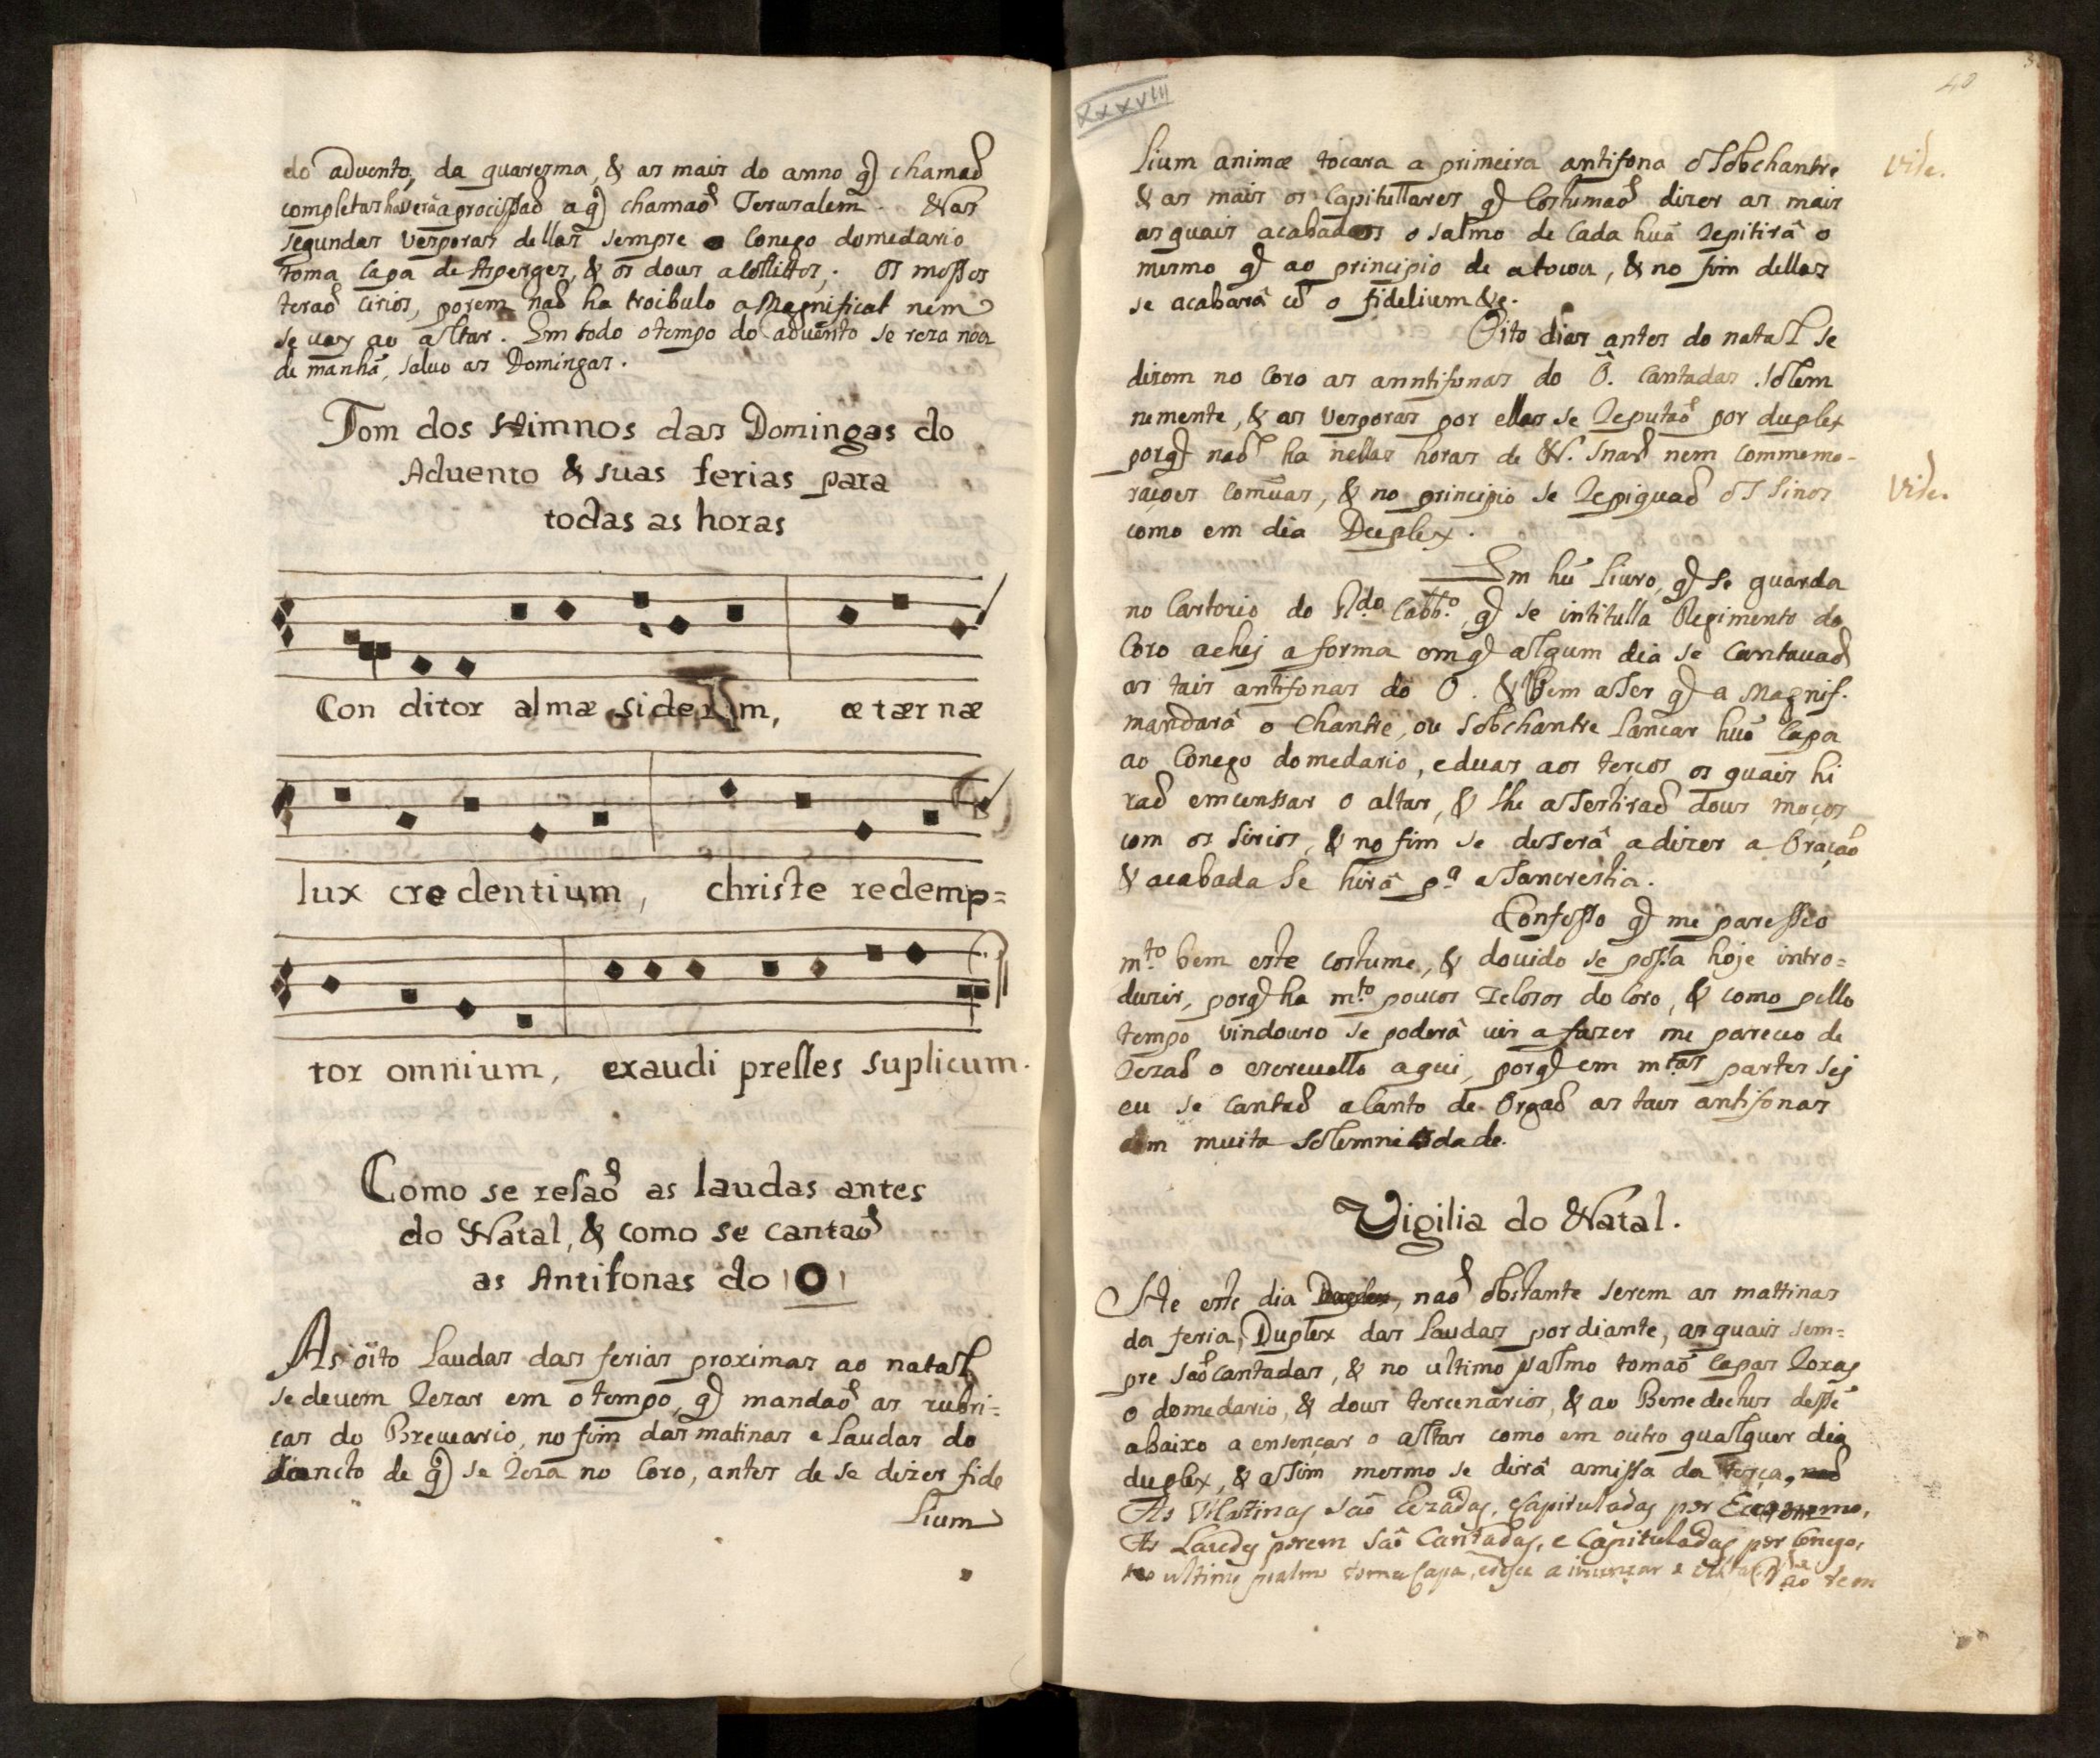 do advento, da quaresma, & as mais do anno q̃ chamaõ
completas haverâ a procissaõ a q̃ chamaõ Jerusalem. Nas
segundas vesporas dellas sempre o Conego domedario
toma capa de Asperges, & os dous acollitos; os mossos
teraõ cirios, porem naõ ha troibulo a Magnificat nem
se vay ao altar. Em todo o tempo do advento se reza noa
de manhã, salvo as Domingas.
Tom dos Himnos das Domingas do
Aduento & suas ferias para
todas as horas
Con ditor almæ siderum, æ tær næ
lux credentium, christe redemp=
tor omnium, exaudi presses suplicum.
Como se resaõ as laudas antes
do Natal, & como se cantaõ
as Antifonas do O
As oito Laudas das ferias proximas ao natal
se devem Rezar em o tempo, q̃ mandaõ as rubri=
cas do Breueario, no fim das matinas e Laudas do
sancto de q̃ se Reza no Coro, antes de se dizer fide
Lium
XXXVIII
40
Lium animæ tocara a primeira antifona o sobchantre
Vide.
& as mais os Capitullares q̃ Costumaõ dizer as mais
as quais acabados o salmo de Cada huã Repitirâ o
mesmo q̃ ao principio de a tocou, & no fim dellas
se acabarâ cõ o fidelium &c.
Oito dias antes do natal se
dizem no Coro as anntifonas do Ô. Cantadas solem
nemente, & as vesporas por ellas se Reputaõ por duplex
porq̃ naõ ha nellas horas de N. Snrâ nem commemo-
raçoes comũas, & no principio se Repiquaõ os sinos
Vide.
como em dia Duplex.
Em hũ Liuro, q̃ se guarda
no Cartorio do R.do Cabb.o, q̃ se intitulla Regimento do
Coro achej a forma em q̃ algum dia se Cantavaõ
as tais antifonas do O. & Vem a ser q̃ a Magnif.
mandarâ o Chantre, ou sobchantre Lançar huã Capa
ao Conego domedario, e duas aos terços os quais hi
raõ emcenssar o altar, & lhe assestiraõ dous moços
com os sirios, & no fim se desserâ a dizer a Oraçaõ
& acabada se hirâ p.a a sancrestia.
Confesso q̃ me paresseo
m.to bem este costume, & douido se possa hoje intro=
duzir, porq̃ ha m.to poucos zelosos do Coro, & como pello
tempo vindouro se poderâ vir a fazer me pareceo de
Rezaõ o escreuello aqui, porq̃ em m.tas partes sej
eu se cantaõ a Canto de Orgaõ as tais antifonas
com muita solemnidade.
Vigilia do Natal.
He este dia Duplex, naõ obstante serem as mattinas
da feria, Duplex das Laudas por diante, as quais sem=
pre saõ cantadas, & no ultimo psalmo tomaõ capas Roxas
o domedario, & dous tercenarios, & ao Benedictus desse
abaixo a ensençar o altar como em outro qualquer dia
duplex, & assim mesmo se dirâ a missa da terça, naõ
As Matinas saõ Rezadas, e Capituladas por Economo,
As Laudes porem saõ Cantadas, e Capituladas por Conego,
no ultimo psalmo toma Capa, e desce a incensar